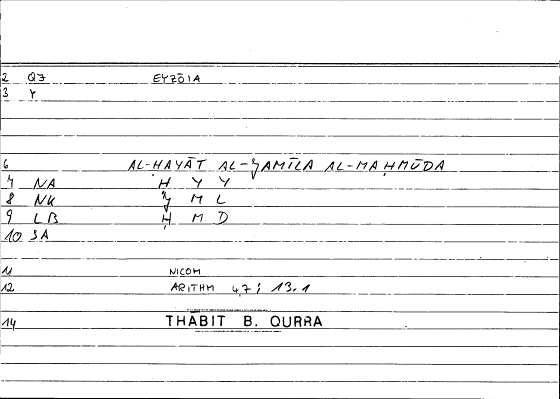 2 QJ EYZŌIA
3 Y
6 AL-ḤAYĀT AL-ǦAMĪLA AL-MAḤMŪDA
7 NA Ḥ Y Y
8 NK Ǧ M L
9 LB Ḥ M D
10 SA
11 NICOM
12 ARITHM 4,7; 13.1
14 THABIT B. QURRA